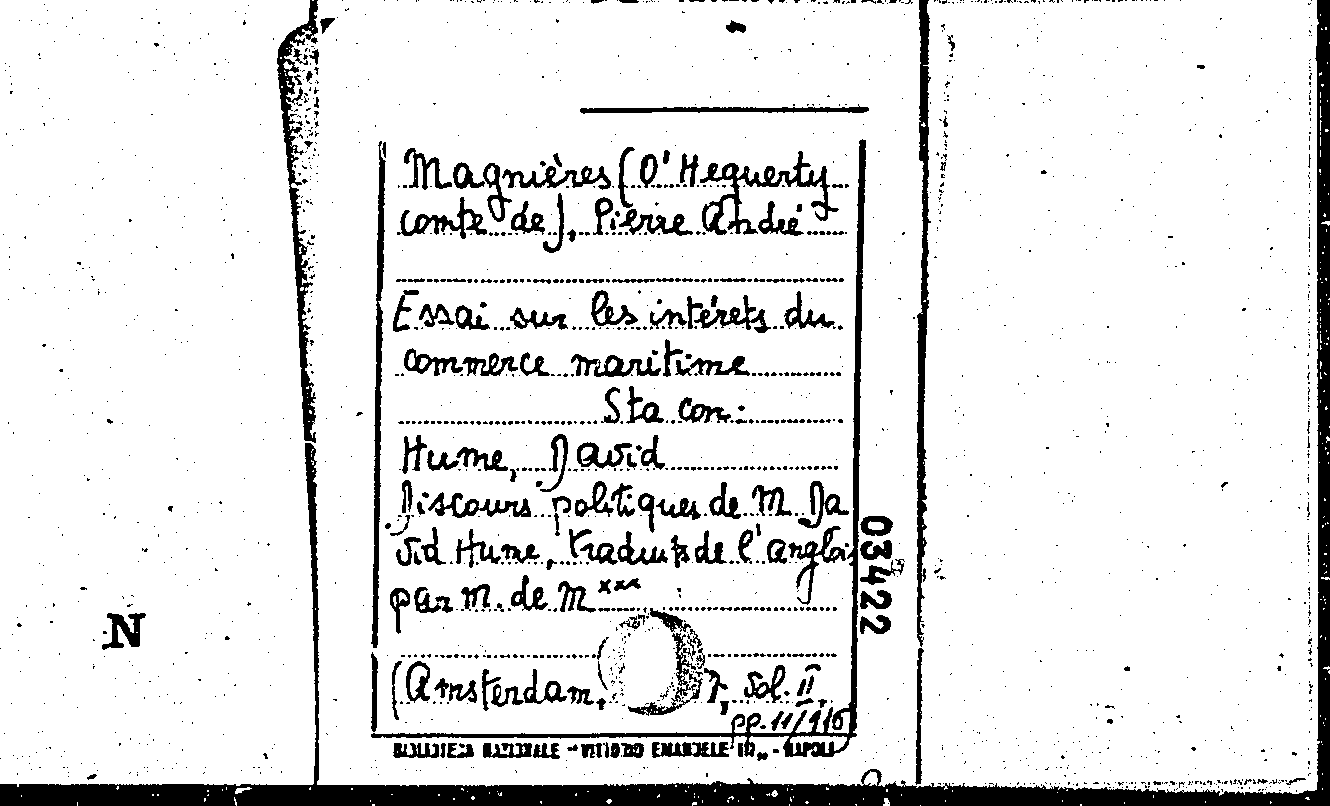 Magnières (O'Heguerty
comte de), Pierre André
Essai sur les intérets du
commerce maritime
Sta con:
Hume, David
Discours politiques de M Da
vid Hume, traduits de l'anglois
par M. de M xxx
(Amsterdam, 7, Vol. II,
pp. 11/116)
BIBLIOTECA NAZIONALE "VITTORIO EMANUELE III" - NAPOLI
03422
N